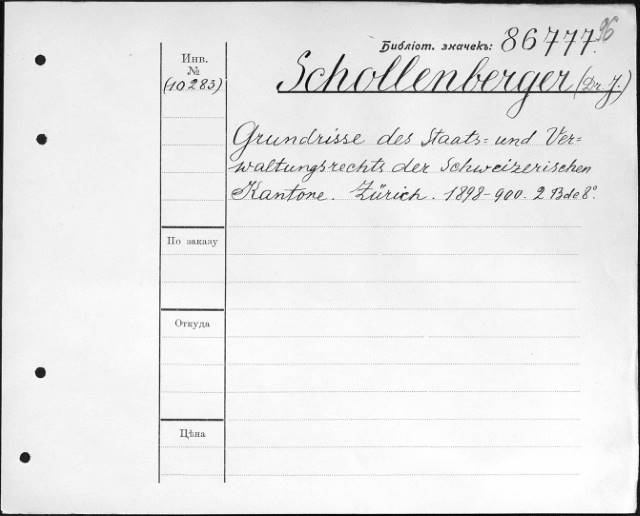 Библіот. значекъ: 86777.96
Инв.
№
(10283)
Schollenberger (Dr J.)
Grundrisse des Staats= und Ver=
waltungsrechts der Schweizerischen
Kantone. Zürich. 1898-900. 2 Bde 8°.
По заказу
Откуда
Цѣна